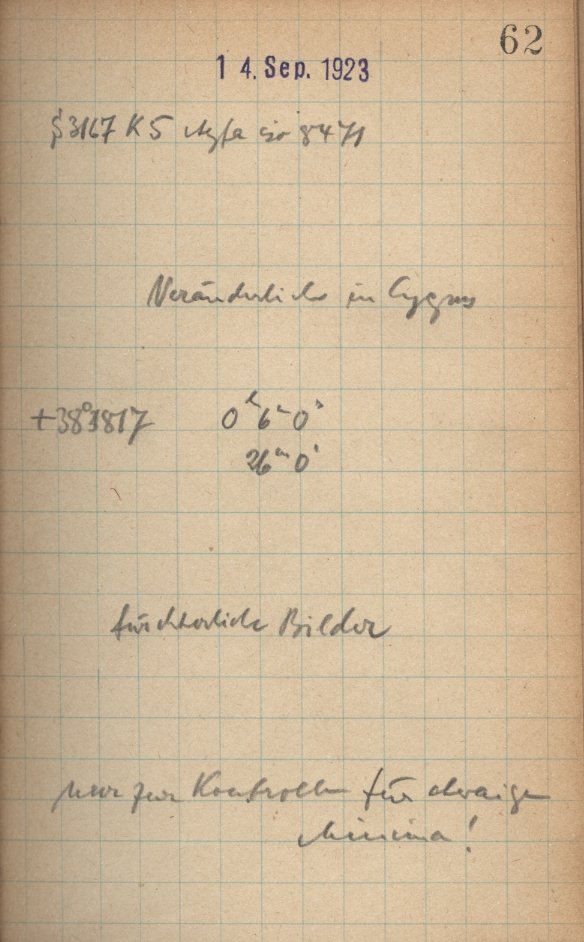 62
14. Sep. 1923
§3167 K5 Agfa iso 8471
Veränderliche in Cygnus
+38°3817 0ʰ 6ᵐ 0ˢ
26ᵐ 0ˢ
fürchterliche Bilder
nur zur Kontrolle für etwaige
Minima!